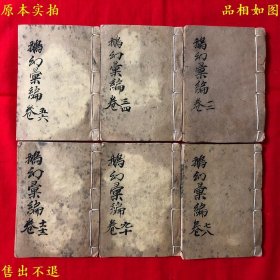 原本实拍
品相如图
鵝幻彙編
卷五六
鵝幻彙編
卷三四
鵝幻彙編
卷一二
鵝幻彙編
卷
鵝幻彙編
卷九十
鵝幻彙編
卷七八
售出不退